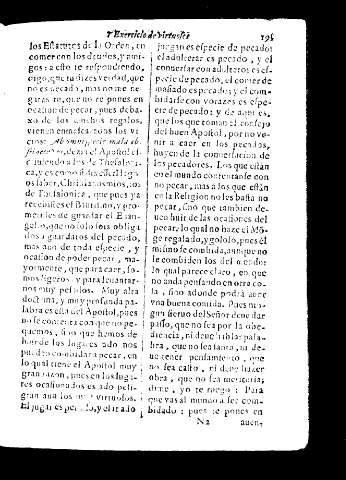 y Exercicio de Virtudes 195
los Estatutos de la Orden, en
comer con los deudos, y ami-
gos: a esto te respondiendo,
digo, que tu dizes verdad, que
no es pecado, mas no me ne-
garas tu, que no te pones en
ocasion de pecar, pues deba-
xo de los muchos regalos,
vienen enhastados todos los vi-
cios: Ab omni specie mala ab-
stinete vos, dezia el Apostol es-
criuiendo a los de Thesaloni-
ca, y es como si dixesse: Digo-
os saber, Christianissimos, los
de Tesalonica, que pues ya
recebistes el Bautismo, y pro-
metistes de guardar el Euan-
gelio, que no solo sois obliga-
dos a guardaros del pecado,
mas aun de toda especie, y
ocasion de poder pecar, ma-
yormente, que para caer, so-
mos ligeros, y para leuantar-
nos muy pesados. Muy alta
doctrina, y muy profunda pa-
labra es esta del Apostol, pues
no se contenta con que no pe-
quemos, sino que hemos de
huir de los lugares ado nos
pueden combidar a pecar, en
lo qual tiene el Apostol muy
gran razon, pues en los luga-
res ocasionados es ado peli-
gran aun los muy virtuosos.
El jugar es pecado, y el ir a do
juegan es especie de pecados
el adulterar es pecado, y el
conuersar con adulteros es es-
pecie de pecado, el comer de-
masiado es pecado; y el com-
bidarse con vorazes es espe-
cie de pecado; y de aqui es,
que los que toman el consejo
del buen Apostol, por no ve-
nir a caer en los pecados,
huyen de la conuersacion de
los pecadores. Los que estan
en el mundo contentanse con
no pecar, mas a los que estàn
en la Religion no les basta no
pecar, sino què tambien de-
uen huir de las ocasiones del
pecar: lo qual no haze el Mo-
ge regalado, y goloso, pues èl
mismo se combida, aunque no
le combiden los del mundo:
lo qual parece claro, en que
no anda pensando en otra co-
sa, sino adonde podrà auer
vna buena comida. Pues nin-
gun sieruo del Señor deue dar
passo, que no sea por la obe-
diencia, ni deue hablar pala-
bra, que no sea santa, ni de-
ue tener pensamiento, que
no sea casto, ni deue hazer
obra, que no sea meritoria;
dime, yo te ruego: Para
que vas al mundo a ser com-
bidado; pues te pones en
N 2 auen-